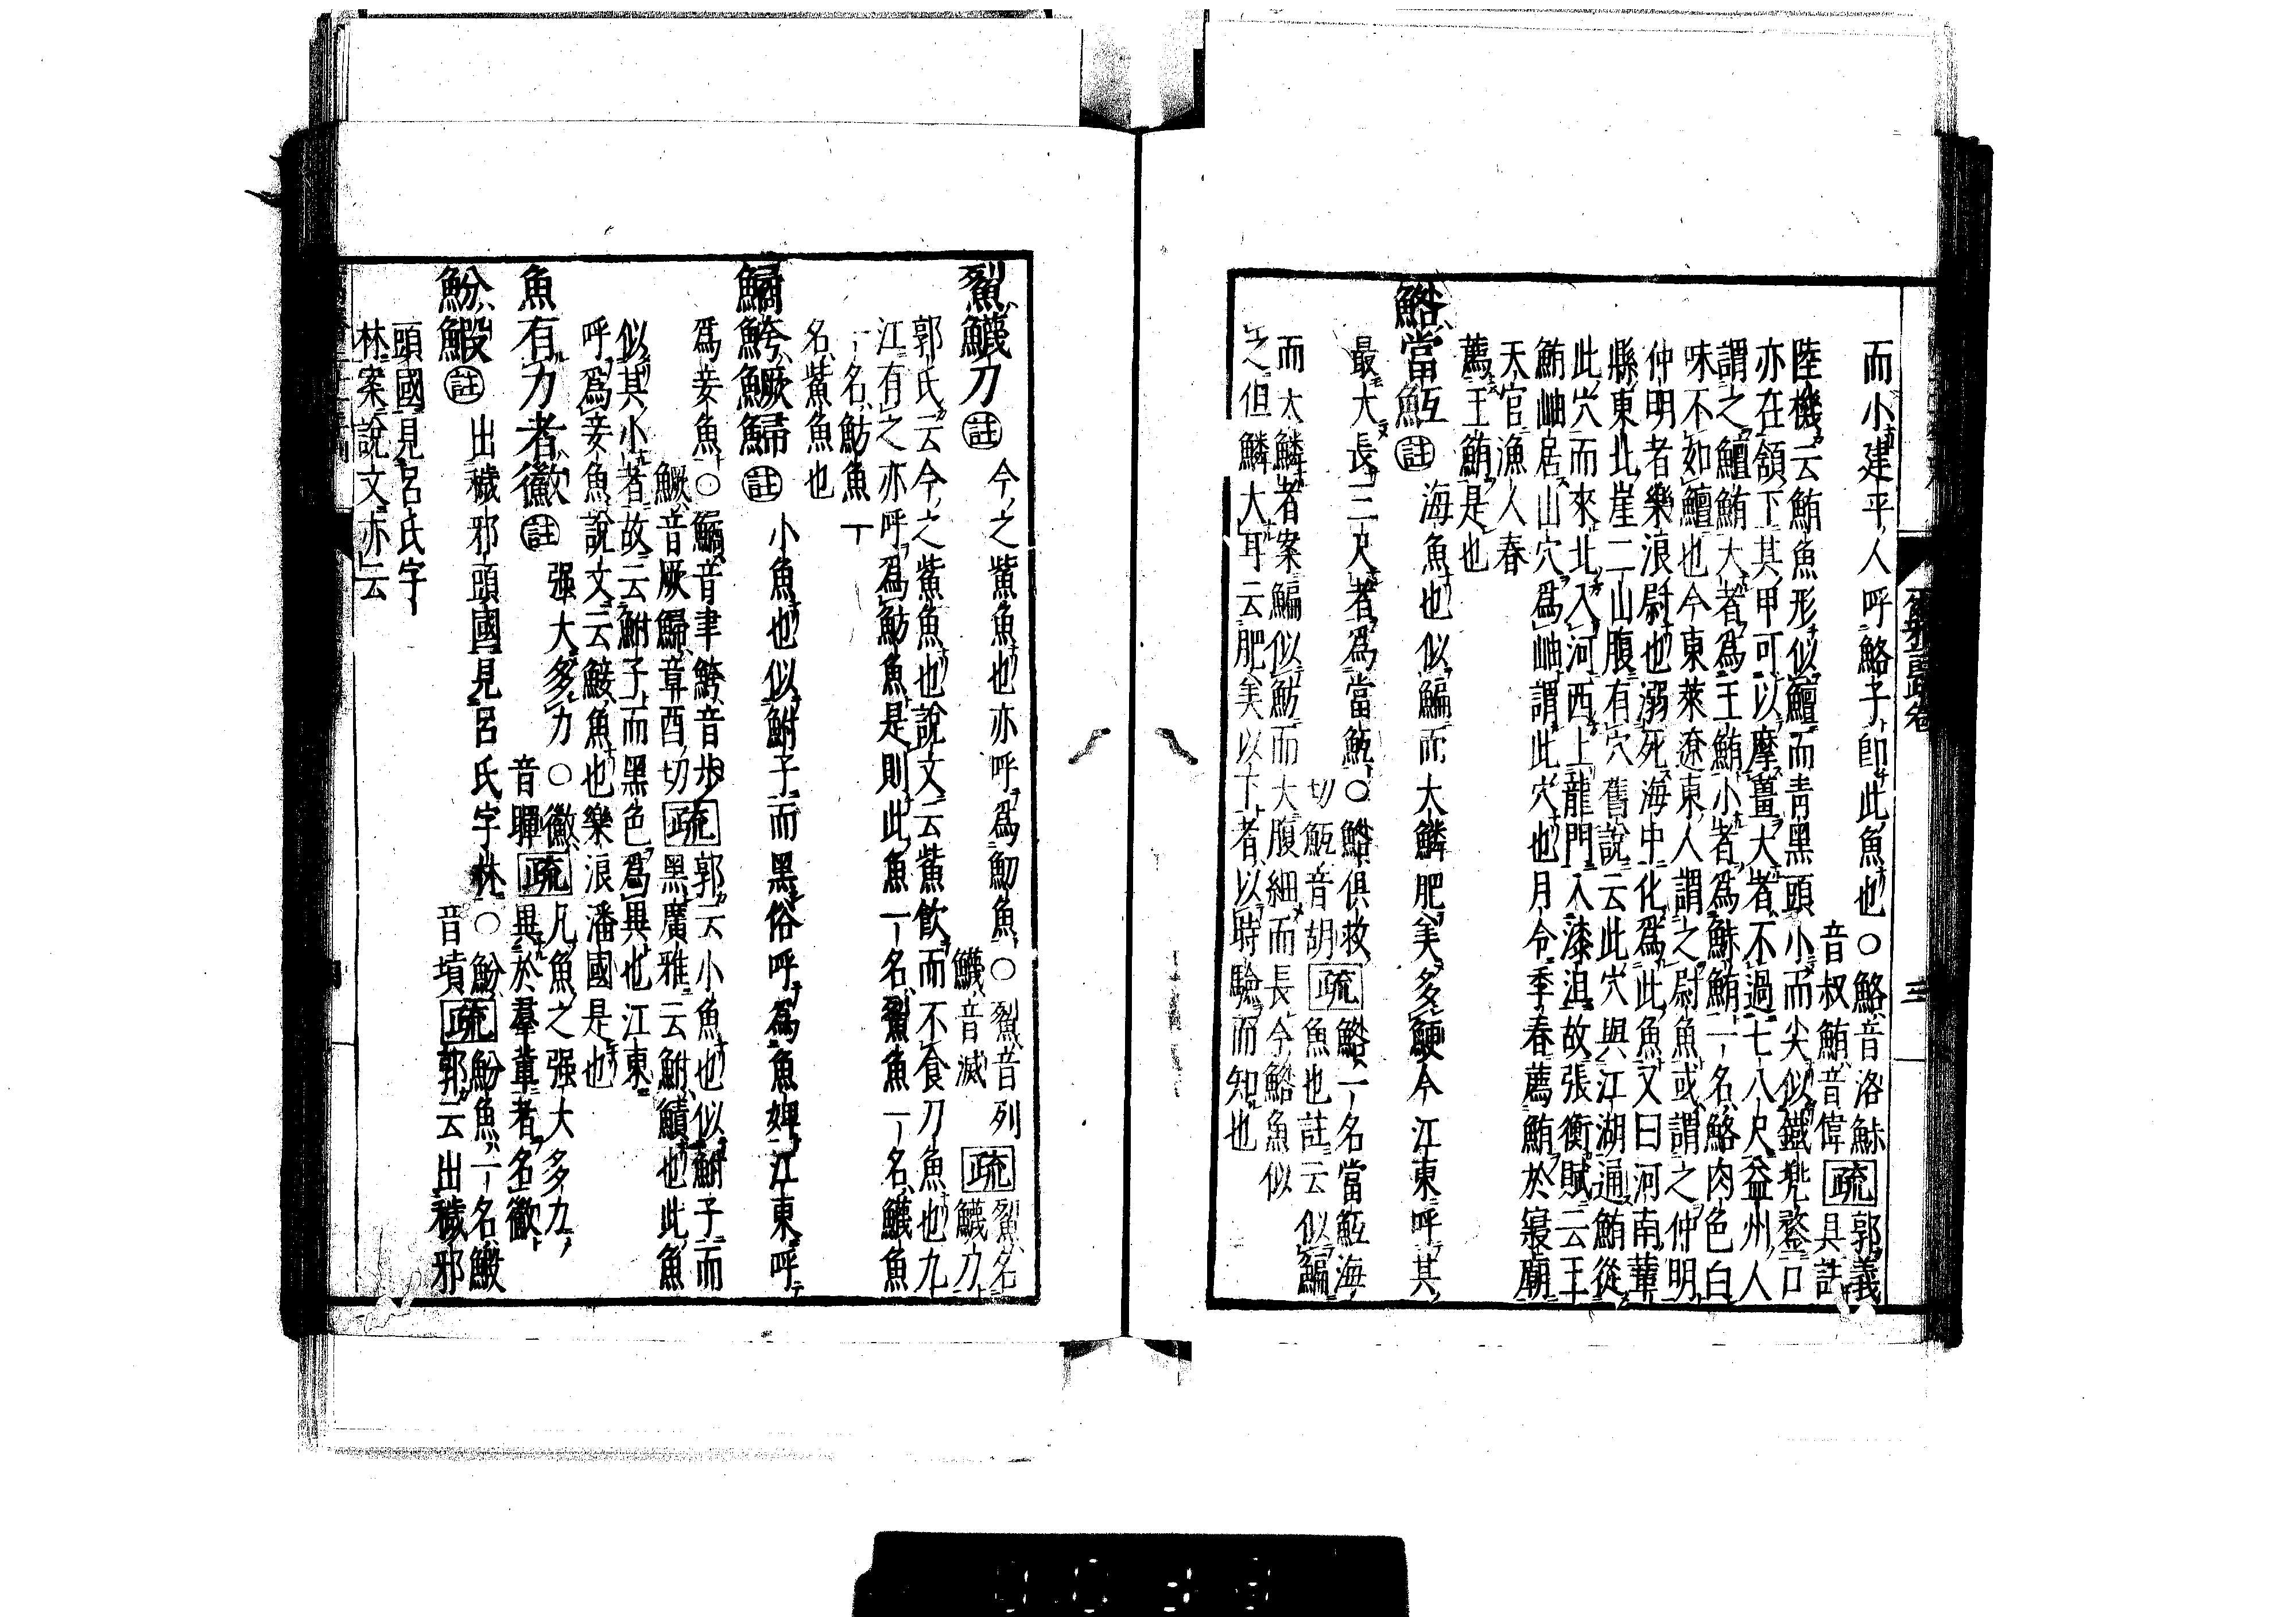 而小建平人呼鮥子卽此魚也〇鮥音洛鮛
音叔鮪音偉疏郭義
具註
陸機云鮪魚形似鱣而青黑頭小而尖似鐵兜鍪口
亦在頷下其甲可以摩薑大者不過七八尺益州人
謂之鱣鮪大者爲王鮪小者爲鮛鮪一名鮥肉色白
味不如鱣也今東萊遼東人謂之尉魚或謂之仲明
仲明者樂浪尉也溺死海中化爲此魚又曰河南鞏
縣東北崖二山腹有穴舊說云此穴與江湖通鮪從
此穴而來北入河西上龍門入漆沮故張衡賦云王
鮪岫居山穴爲岫謂此穴也月令季春薦鮪於寢廟
天官漁人春
薦王鮪是也
鮥當魱註海魚也似鯿而大鱗肥美多鯁今江東呼其
最大長三尺者爲當魱〇鮥俱救
切魱音胡疏鮥一名當魱海
魚也註云似鯿
而大鱗者案鯿似魴而大腹細而長今鮥魚似
之但鱗大耳云肥美以下者以時驗而知也
鮤鱴刀註今之鮆魚也亦呼爲魛魚〇鮤音列
鱴音滅疏鮤名
鱴刀
郭氏云今之鮆魚也說文云鮆飲而不食刀魚也九
江有之亦呼爲魴魚是則此魚一名鮤魚一名鱴魚
一名魴魚一
名鮆魚也
鱊鮬鱖鯞註小魚也似鮒子而黑俗呼爲魚婢江東呼
爲妾魚〇鱊音聿鮬音步
鱖音厥鯞章酉切疏郭云小魚也似鮒子而
黑廣雅云鮒鰿也此魚
似其小者故云鮒子而黑色爲異也江東
呼爲妾魚說文云鯜魚也樂浪潘國是也
魚有力者徽註强大多力〇徽
音暉疏凡魚之强大多力
異於羣輩者名徽
魵鰕註出穢邪頭國見呂氏字林〇魵
音墳疏魵魚一名鰕
郭云出穢邪
頭國見呂氏字
林案說文亦云